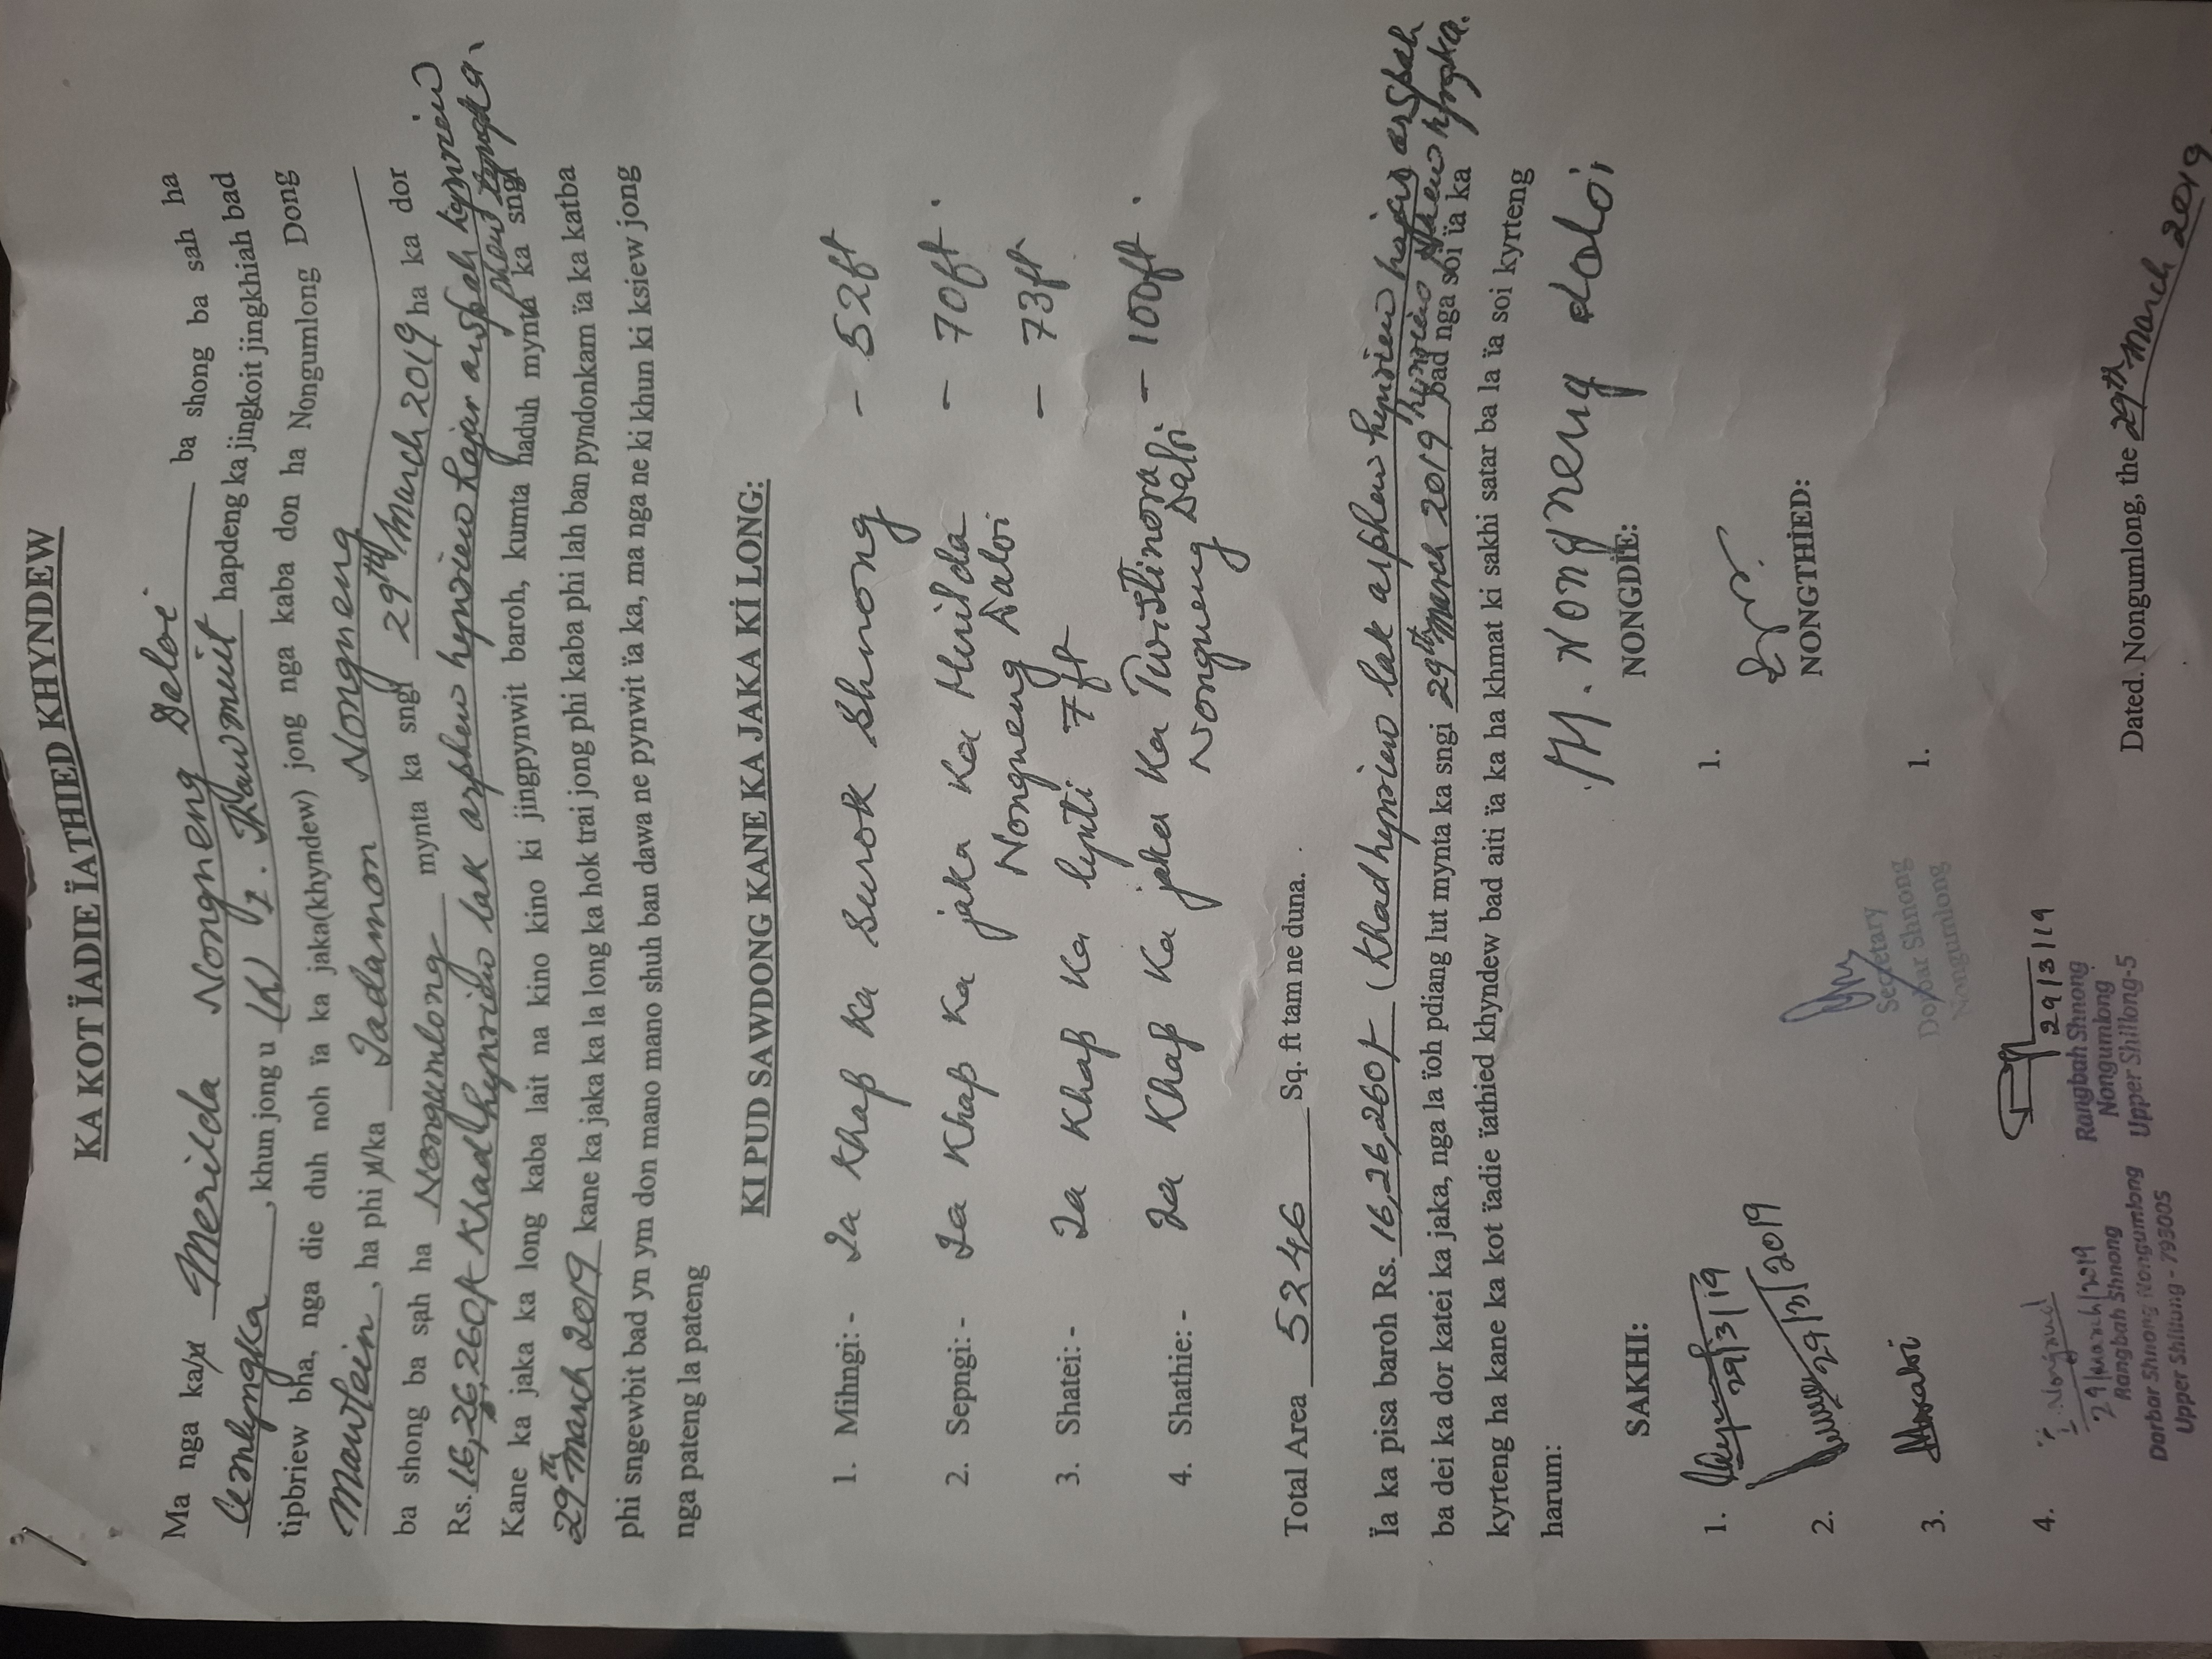 KA KOT ÏADIE ÏATHIED KHYNDEW
Ma nga ka/u Merilda Nongneng Daloi ba shong ba sah ha
Lemlyngka, khun jong u (K) I. Thawmuit hapdeng ka jingkoit jingkhiah bad
tipbriew bha, nga die duh noh ïa ka jaka(khyndew) jong nga kaba don ha Nongumlong Dong
Mawlein, ha phi u/ka Iadamon Nongneng
ba shong ba sah ha Nongumlong mynta ka sngi 29th March 2019 ha ka dor
Rs. 16,26,260/- Khadhynriew lak arphew hynriew hajar arspah hynriew
phew tyngka.
Kane ka jaka ka long kaba lait na kino kino ki jingpynwit baroh, kumta haduh mynta ka sngi
29th March 2019 kane ka jaka ka la long ka hok trai jong phi kaba phi lah ban pyndonkam ïa ka katba
phi sngewbit bad yn ym don mano mano shuh ban dawa ne pynwit ïa ka, ma nga ne ki khun ki ksiew jong
nga pateng la pateng
KI PUD SAWDONG KANE KA JAKA KI LONG:
1. Mihngi: - Ia Khap Ka Surok Shnong - 52ft
2. Sepngi: - Ia Khap Ka jaka Ka Merilda - 70ft.
Nongneng Daloi
3. Shatei: - Ia Khap Ka lynti 7ft - 73ft
4. Shathie: - Ia Khap Ka jaka Ka Twistinora - 100ft.
Nongneng Daloi
Total Area 5246 Sq. ft tam ne duna.
Ïa ka pisa baroh Rs. 16,26,260/- (Khadhynriew lak arphew hynriew hajar arspah
hynriew phew tyngka.
ba dei ka dor katei ka jaka, nga la ïoh pdiang lut mynta ka sngi 29th March 2019 bad nga soi ïa ka
kyrteng ha kane ka kot ïadie ïathied khyndew bad aiti ïa ka ha khmat ki sakhi satar ba la ïa soi kyrteng
harum:
M. Nongneng Daloi
SAKHI:
NONGDIE:
1. 29/3/19
1.
2. 29/3/2019
NONGTHIED:
Secretary
Dorbar Shnong
Nongumlong
3.
1.
29/3/19
Rangbah Shnong
Nongumlong
Upper Shillong-5
4.
29/March/2019
Rangbah Shnong
Dorbar Shnong Nongumlong
Upper Shillong - 793005
Dated. Nongumlong, the 29th March 2019